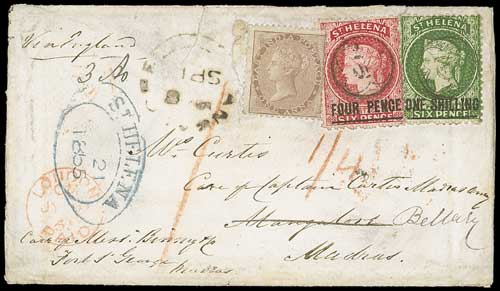 Via England
ST HELENA
FOUR PENCE
SIX PENCE
ST HELENA
ONE SHILLING
SIX PENCE
ST HELENA
21
1865
LONDON
1/4
Mrs. Curtis
Care of Captain Curtis Madras Army
Mangalore Bellary
Madras.
Care of Messrs. Binny & Co
Fort St. George
Madras